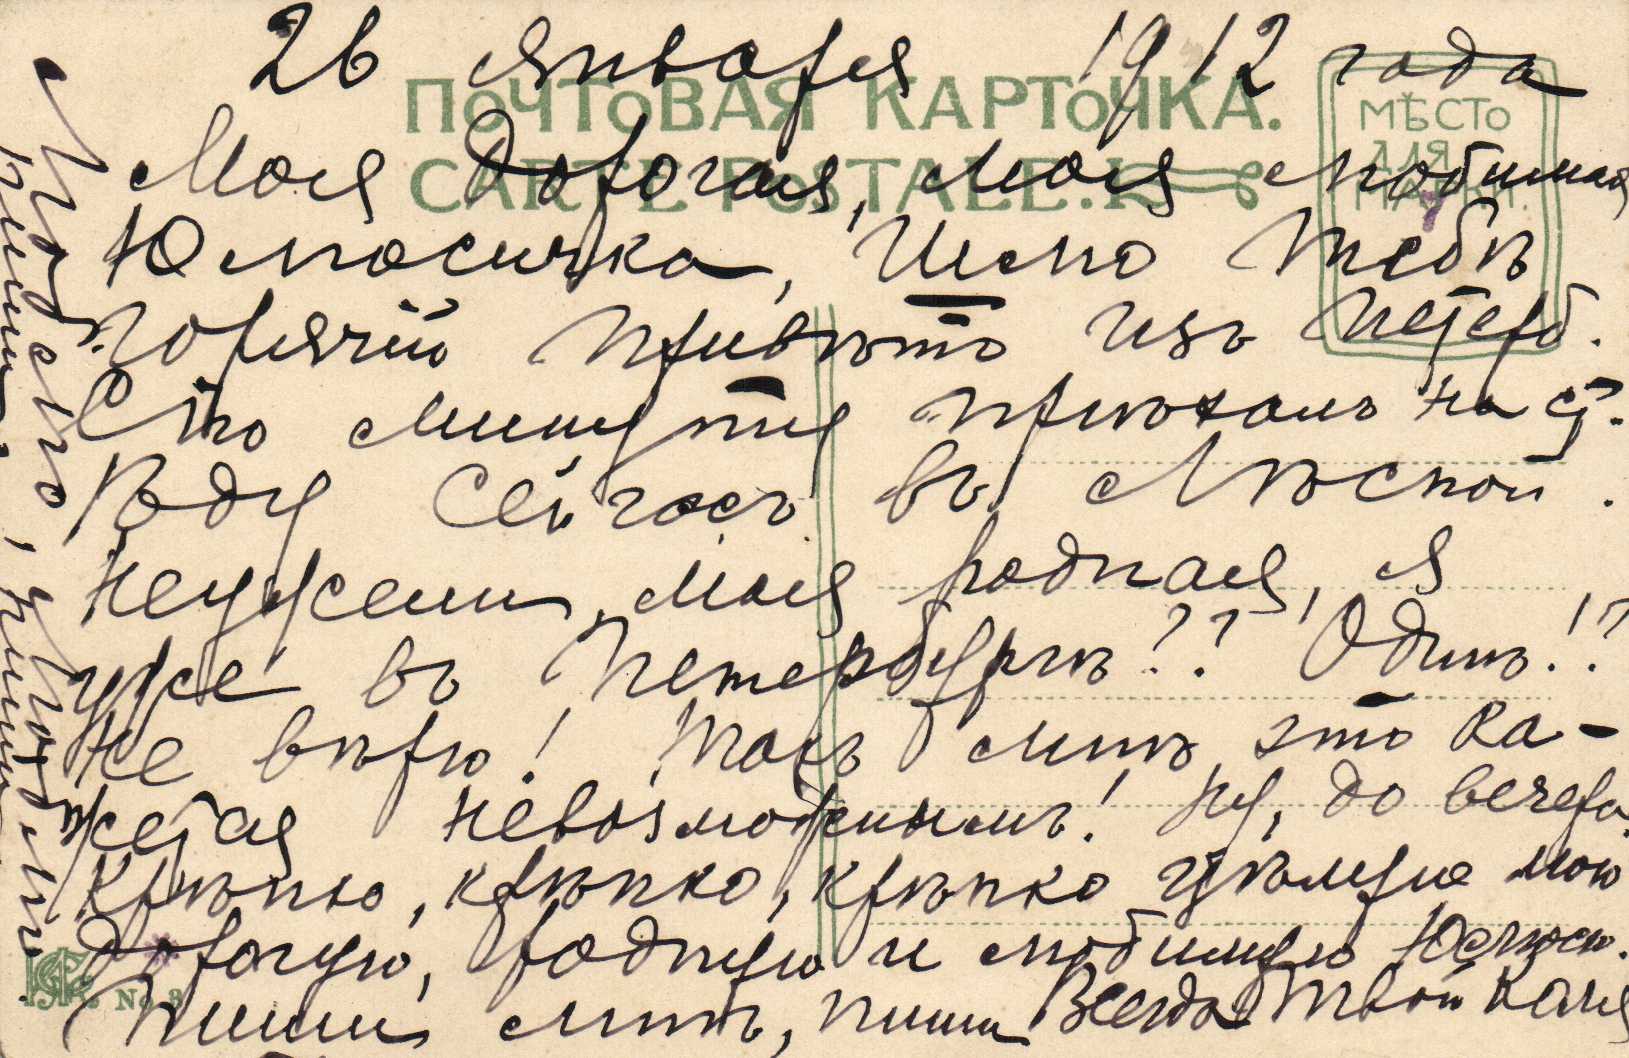 26 января 1912 года
ПОЧТОВАЯ КАРТОЧКА.
CARTE POSTALE.
МѢСТО
ДЛЯ
МАРКИ.
Моя дорогая, моя любимая
Юлюсичка, Шлю тебѣ
горячій привѣтъ изъ Петерб.
Сію минуту пріѣхалъ на ст.
Ѣду сейчасъ въ Лѣсной.
Неужели, моя родная, я
уже въ Петербургѣ?? Одинъ!?
Не вѣрю! Такъ мнѣ это ка-
жется невозможнымъ! Ну, до вечера.
Крѣпко, крѣпко, крѣпко цѣлую мою
дорогую, родную и любимую Юлюсю.
Пиши мнѣ, пиши Всегда Твой Каля
No 8
пиши,